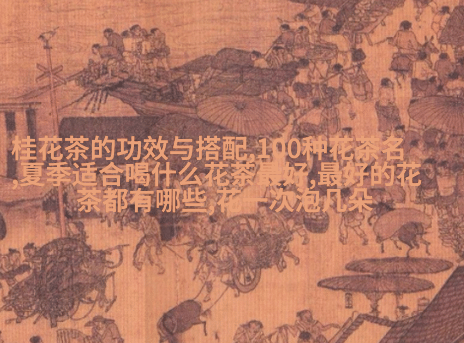 桂花茶的功效与搭配,100种花茶名
,夏季适合喝什么花茶最好,最好的花
茶都有哪些,花一次泡几朵